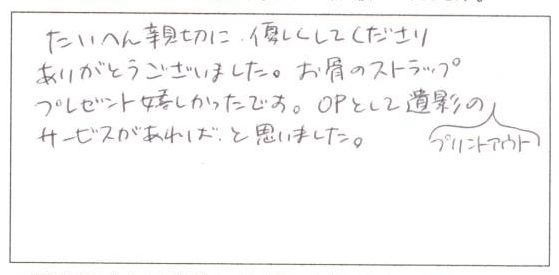 たいへん親切に、優しくしてくださり
ありがとうございました。お骨のストラップ
プレゼント嬉しかったです。OPとして遺影の
サービスがあればと思いました。
プリントアウト